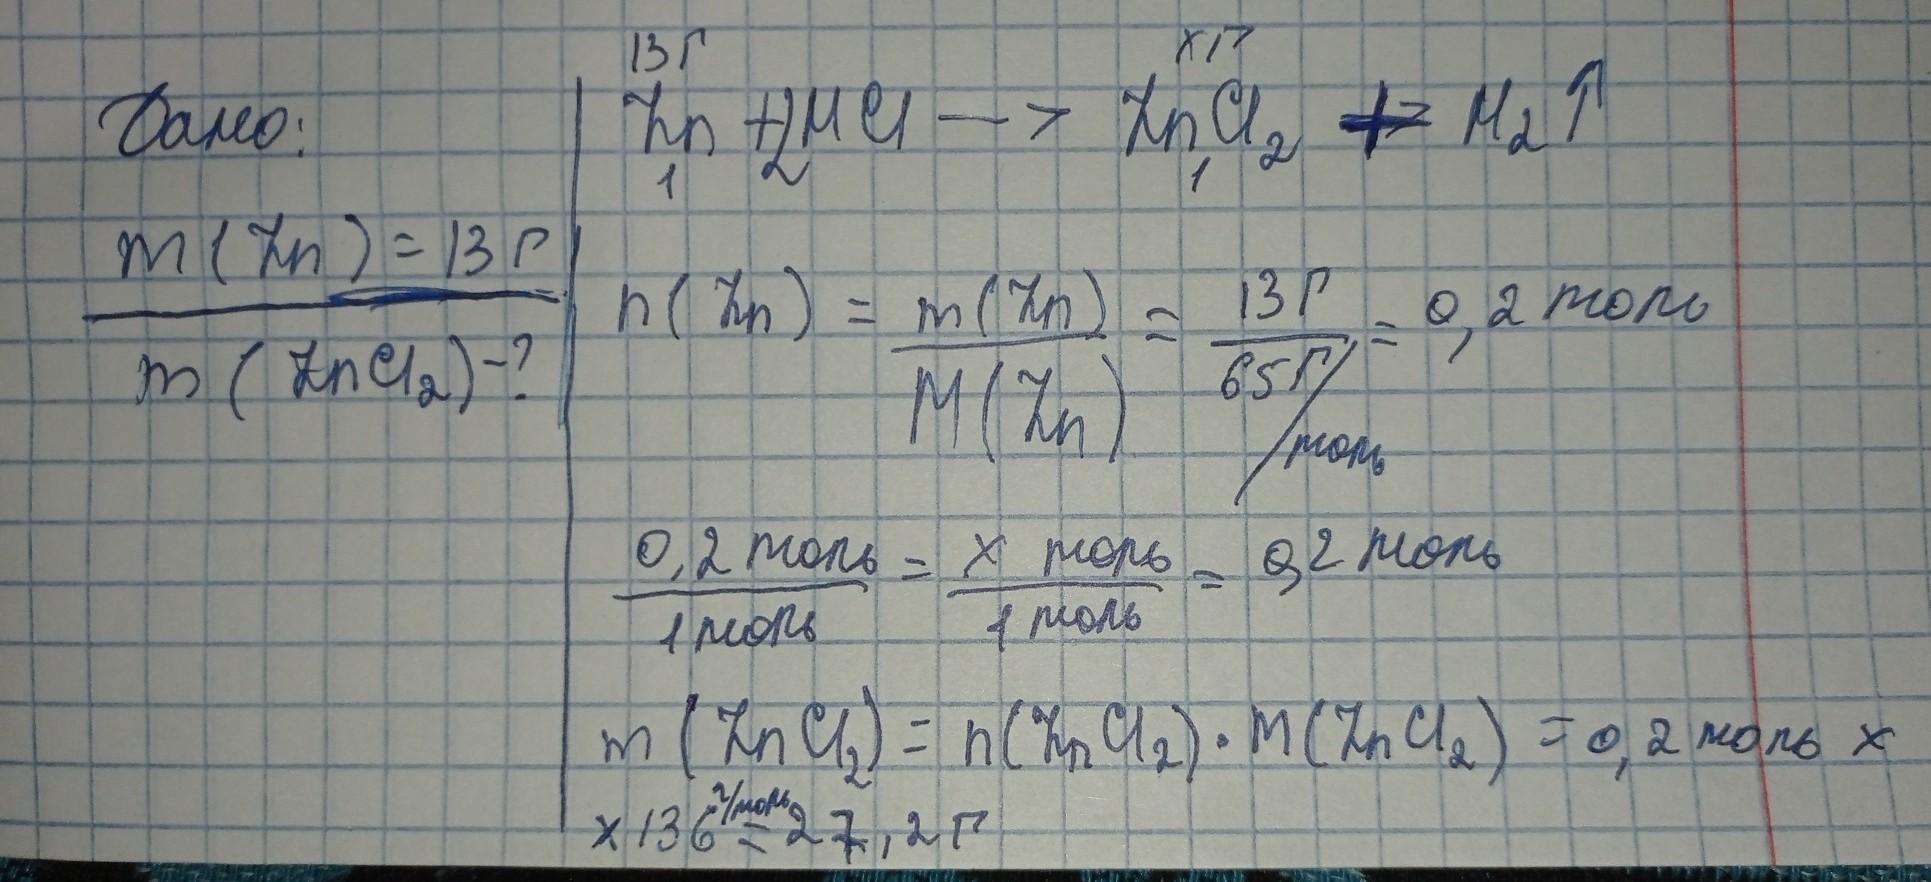 Дано:
m(Zn) = 13 г
m(ZnCl₂) - ?
13 г x г
Zn + 2HCl —> ZnCl₂ + H₂↑
1 2 1
n(Zn) = m(Zn) / M(Zn) = 13 г / 65 г/моль = 0,2 моль
0,2 моль / 1 моль = x моль / 1 моль = 0,2 моль
m(ZnCl₂) = n(ZnCl₂) · M(ZnCl₂) = 0,2 моль ×
× 136 г/моль = 27,2 г